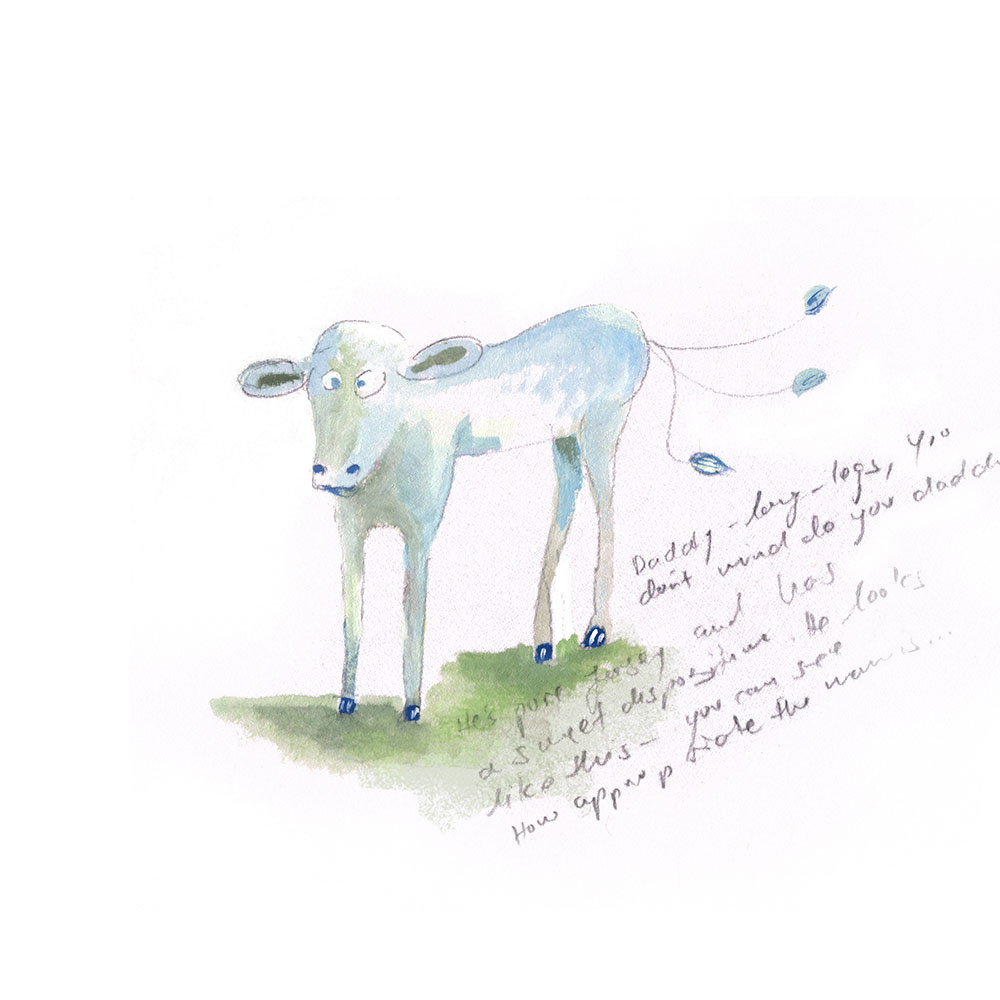 Daddy-long-legs, you
don't mind do you daddy
He's pure Jersey and has
a sweet disposition. He looks
like this - you can see
How appropriate the name is...